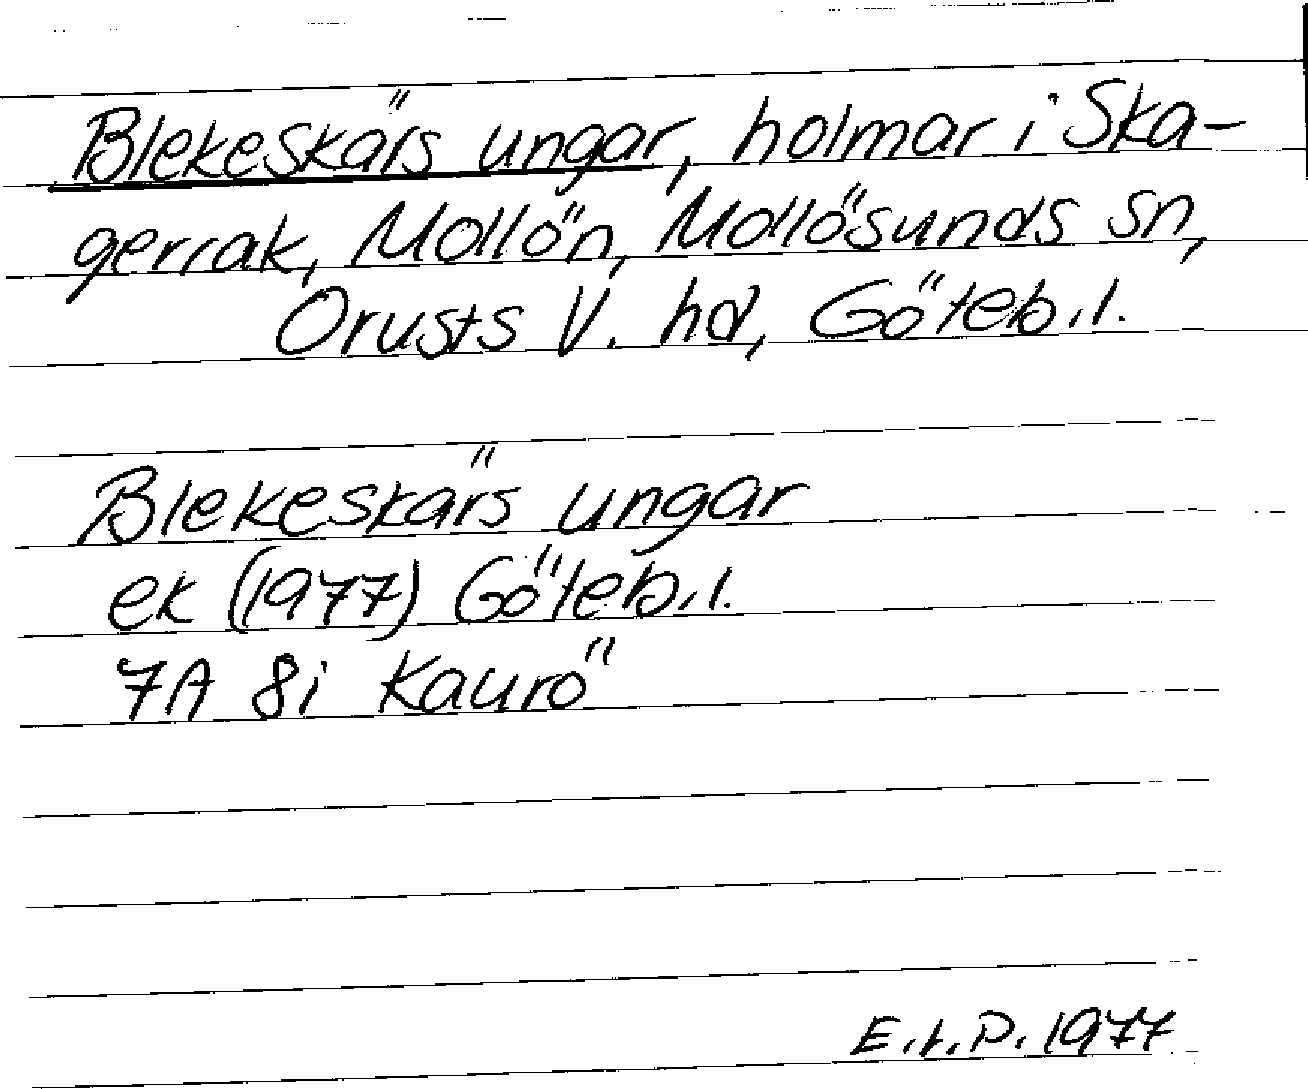 Blekeskärs ungar, holmar i Ska-
gerrak, Mollön, Mollösunds sn,
Orusts V. hd, Göteb.l.
Blekeskärs ungar
ek (1977) Göteb.l.
7A 8i Kaurö
E.t.P. 1977